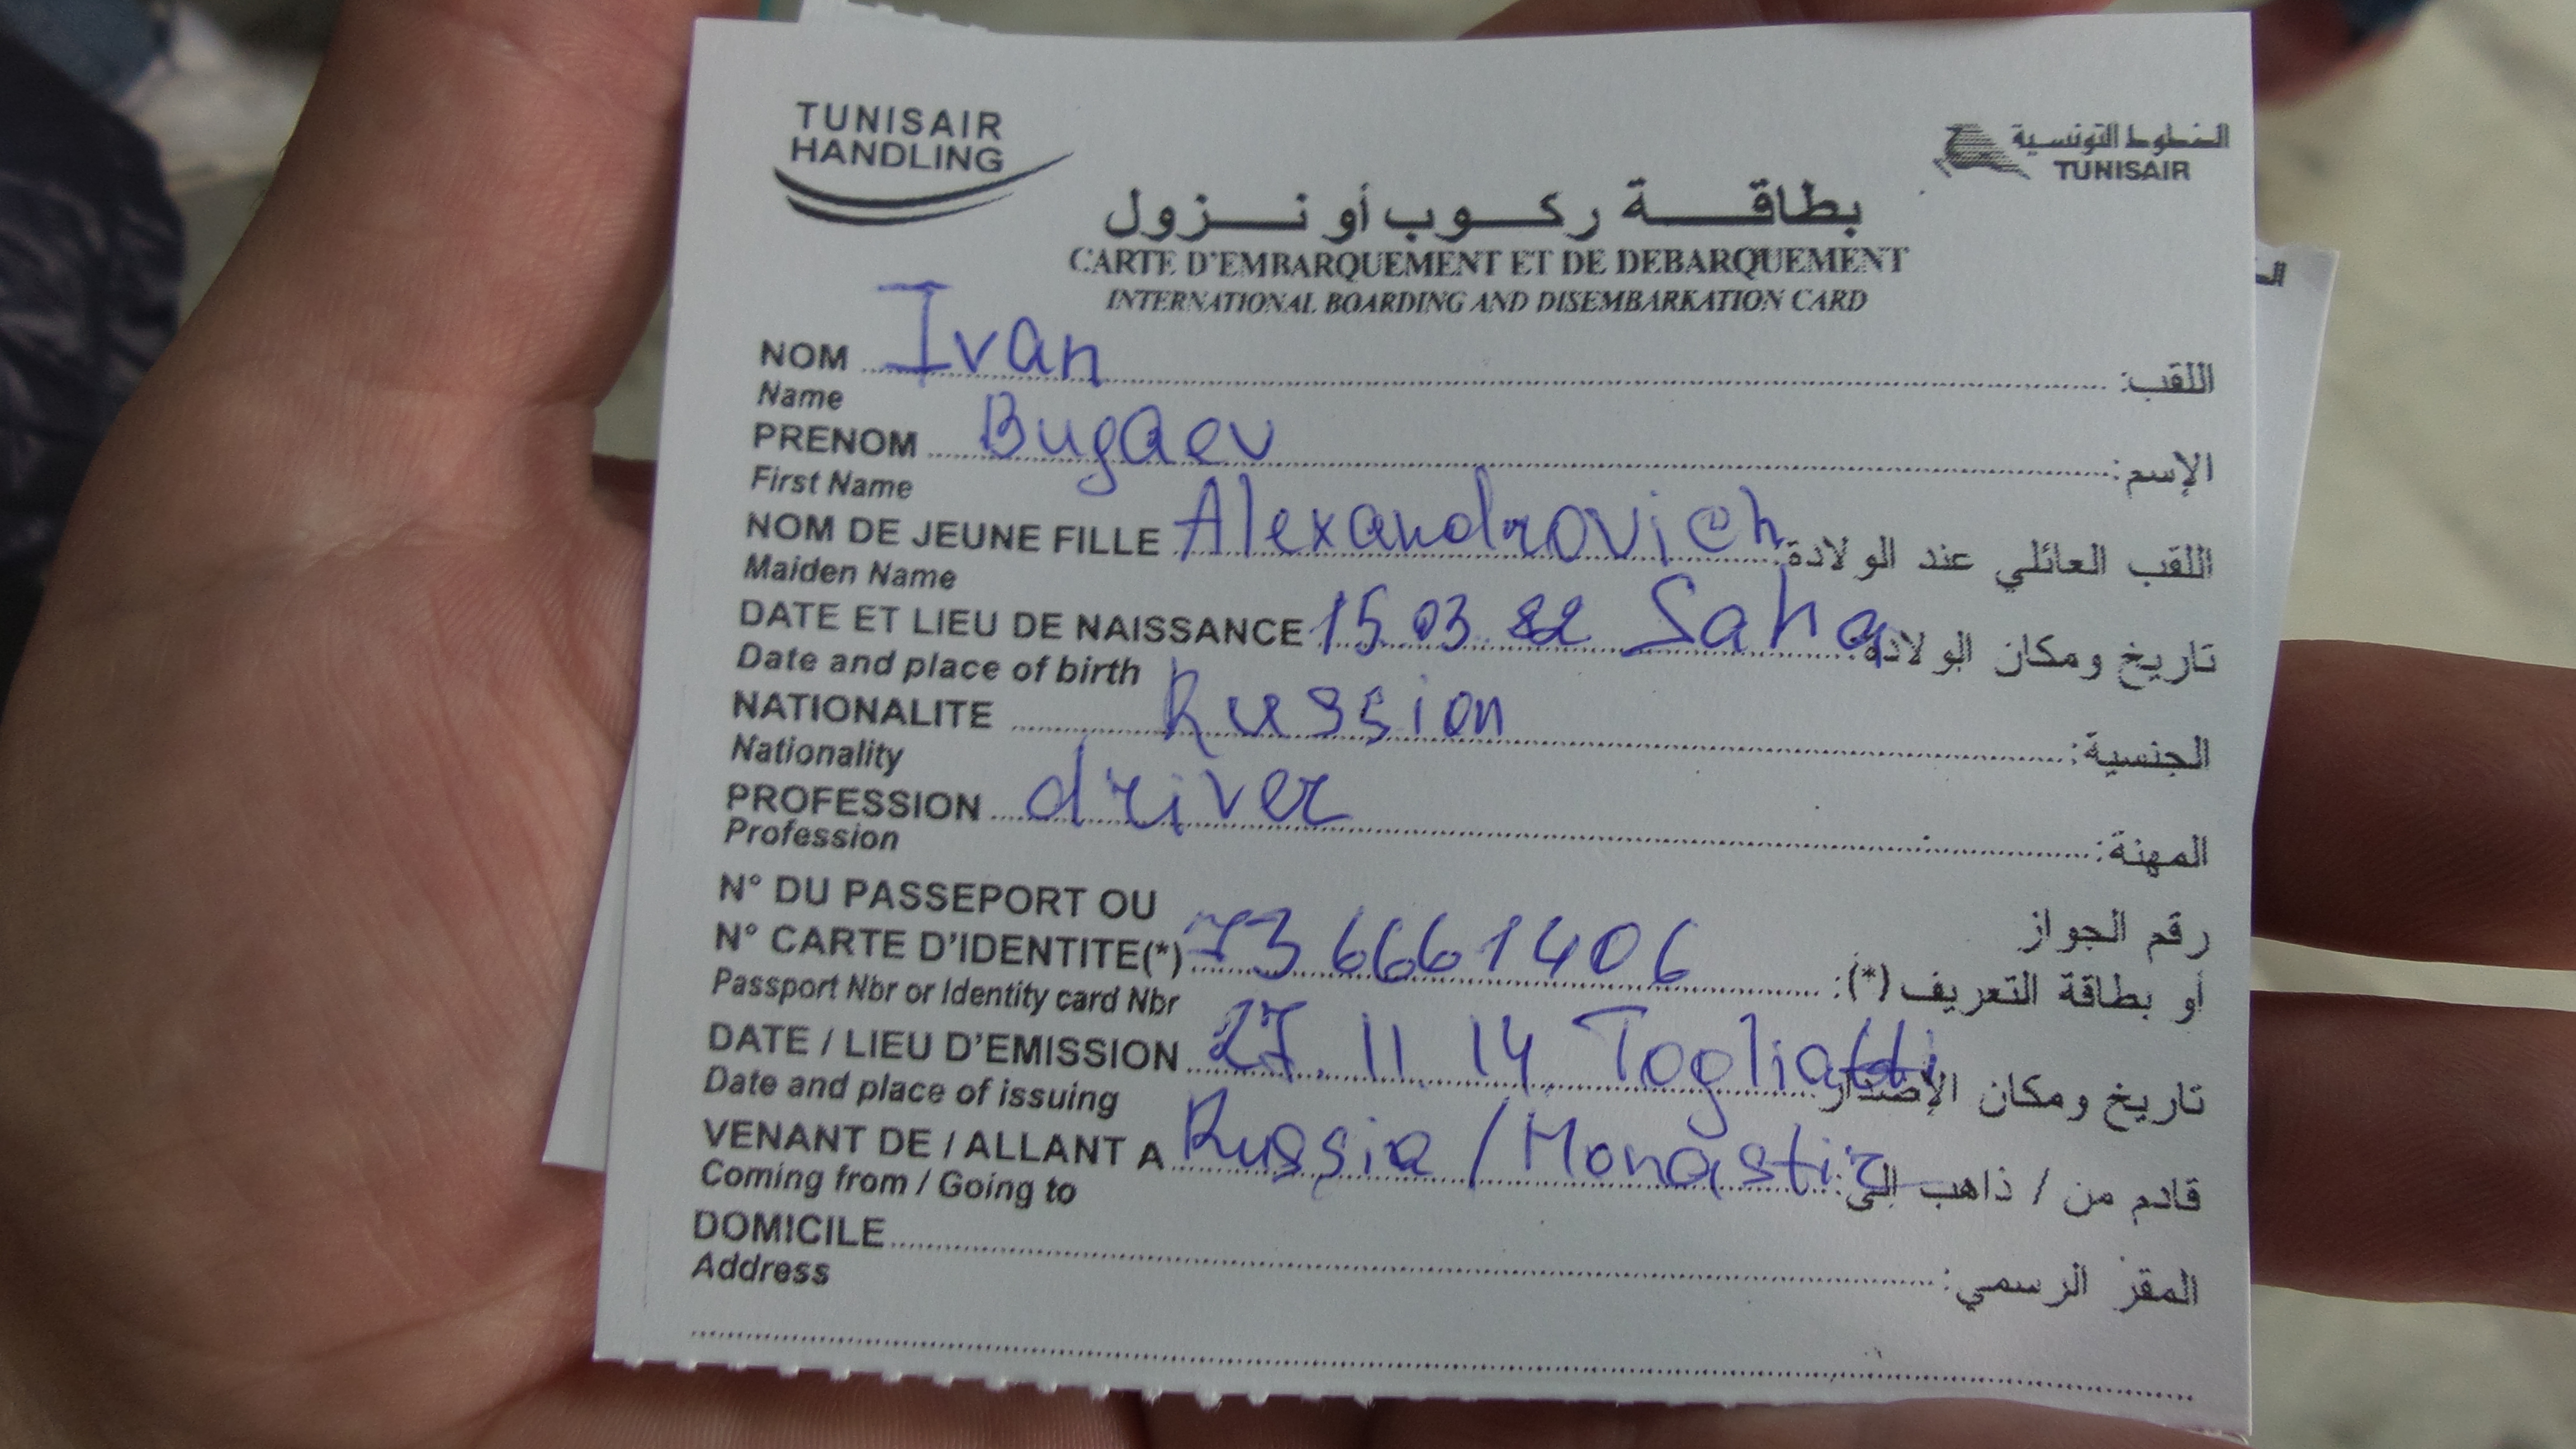 TUNISAIR
HANDLING
الخطوط التونسية
TUNISAIR
بطاقة ركوب أو نزول
CARTE D'EMBARQUEMENT ET DE DEBARQUEMENT
INTERNATIONAL BOARDING AND DISEMBARKATION CARD
NOM Ivan اللقب:
Name
PRENOM Bugaev الإسم:
First Name
NOM DE JEUNE FILLE Alexandrovich اللقب العائلي عند الولادة:
Maiden Name
DATE ET LIEU DE NAISSANCE 15.03.82 Saha تاريخ ومكان الولادة:
Date and place of birth
NATIONALITE Russion الجنسية:
Nationality
PROFESSION driver المهنة:
Profession
N° DU PASSEPORT OU رقم الجواز
N° CARTE D'IDENTITE(*) 73 6661406 أو بطاقة التعريف (*):
Passport Nbr or Identity card Nbr
DATE / LIEU D'EMISSION 27.11.14 Togliatti تاريخ ومكان الإصدار
Date and place of issuing
VENANT DE / ALLANT A Russia / Monastir قادم من / ذاهب إلى:
Coming from / Going to
DOMICILE المقر الرسمي:
Address